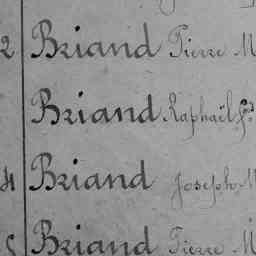 2 Briand Pierre M
Briand Raphaël fd
4 Briand Joseph M
5 Briand Pierre M